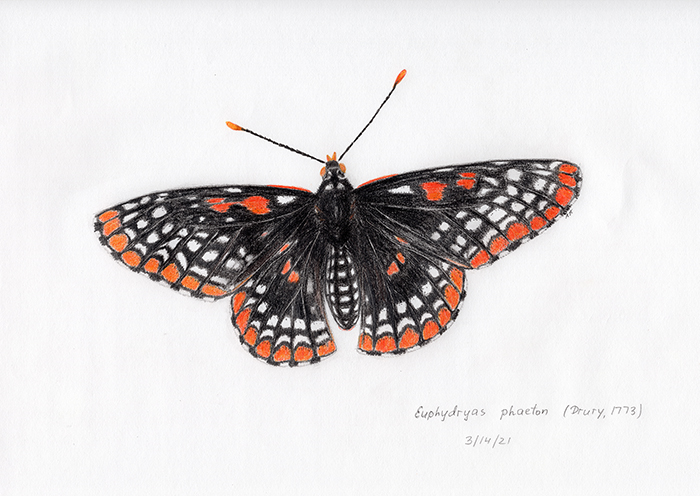 Euphydryas phaeton (Drury, 1773)
3/14/21